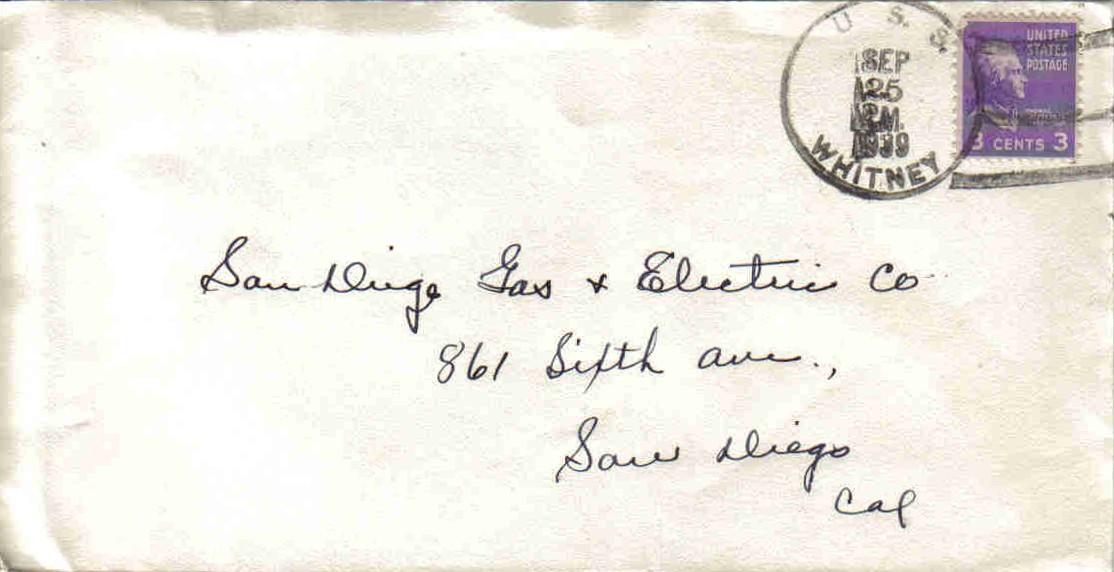 U.S.S.
SEP
25
1939
WHITNEY
UNITED
STATES
POSTAGE
3 CENTS 3
San Diego Gas & Electric Co
861 Sixth Ave.,
San Diego
Cal